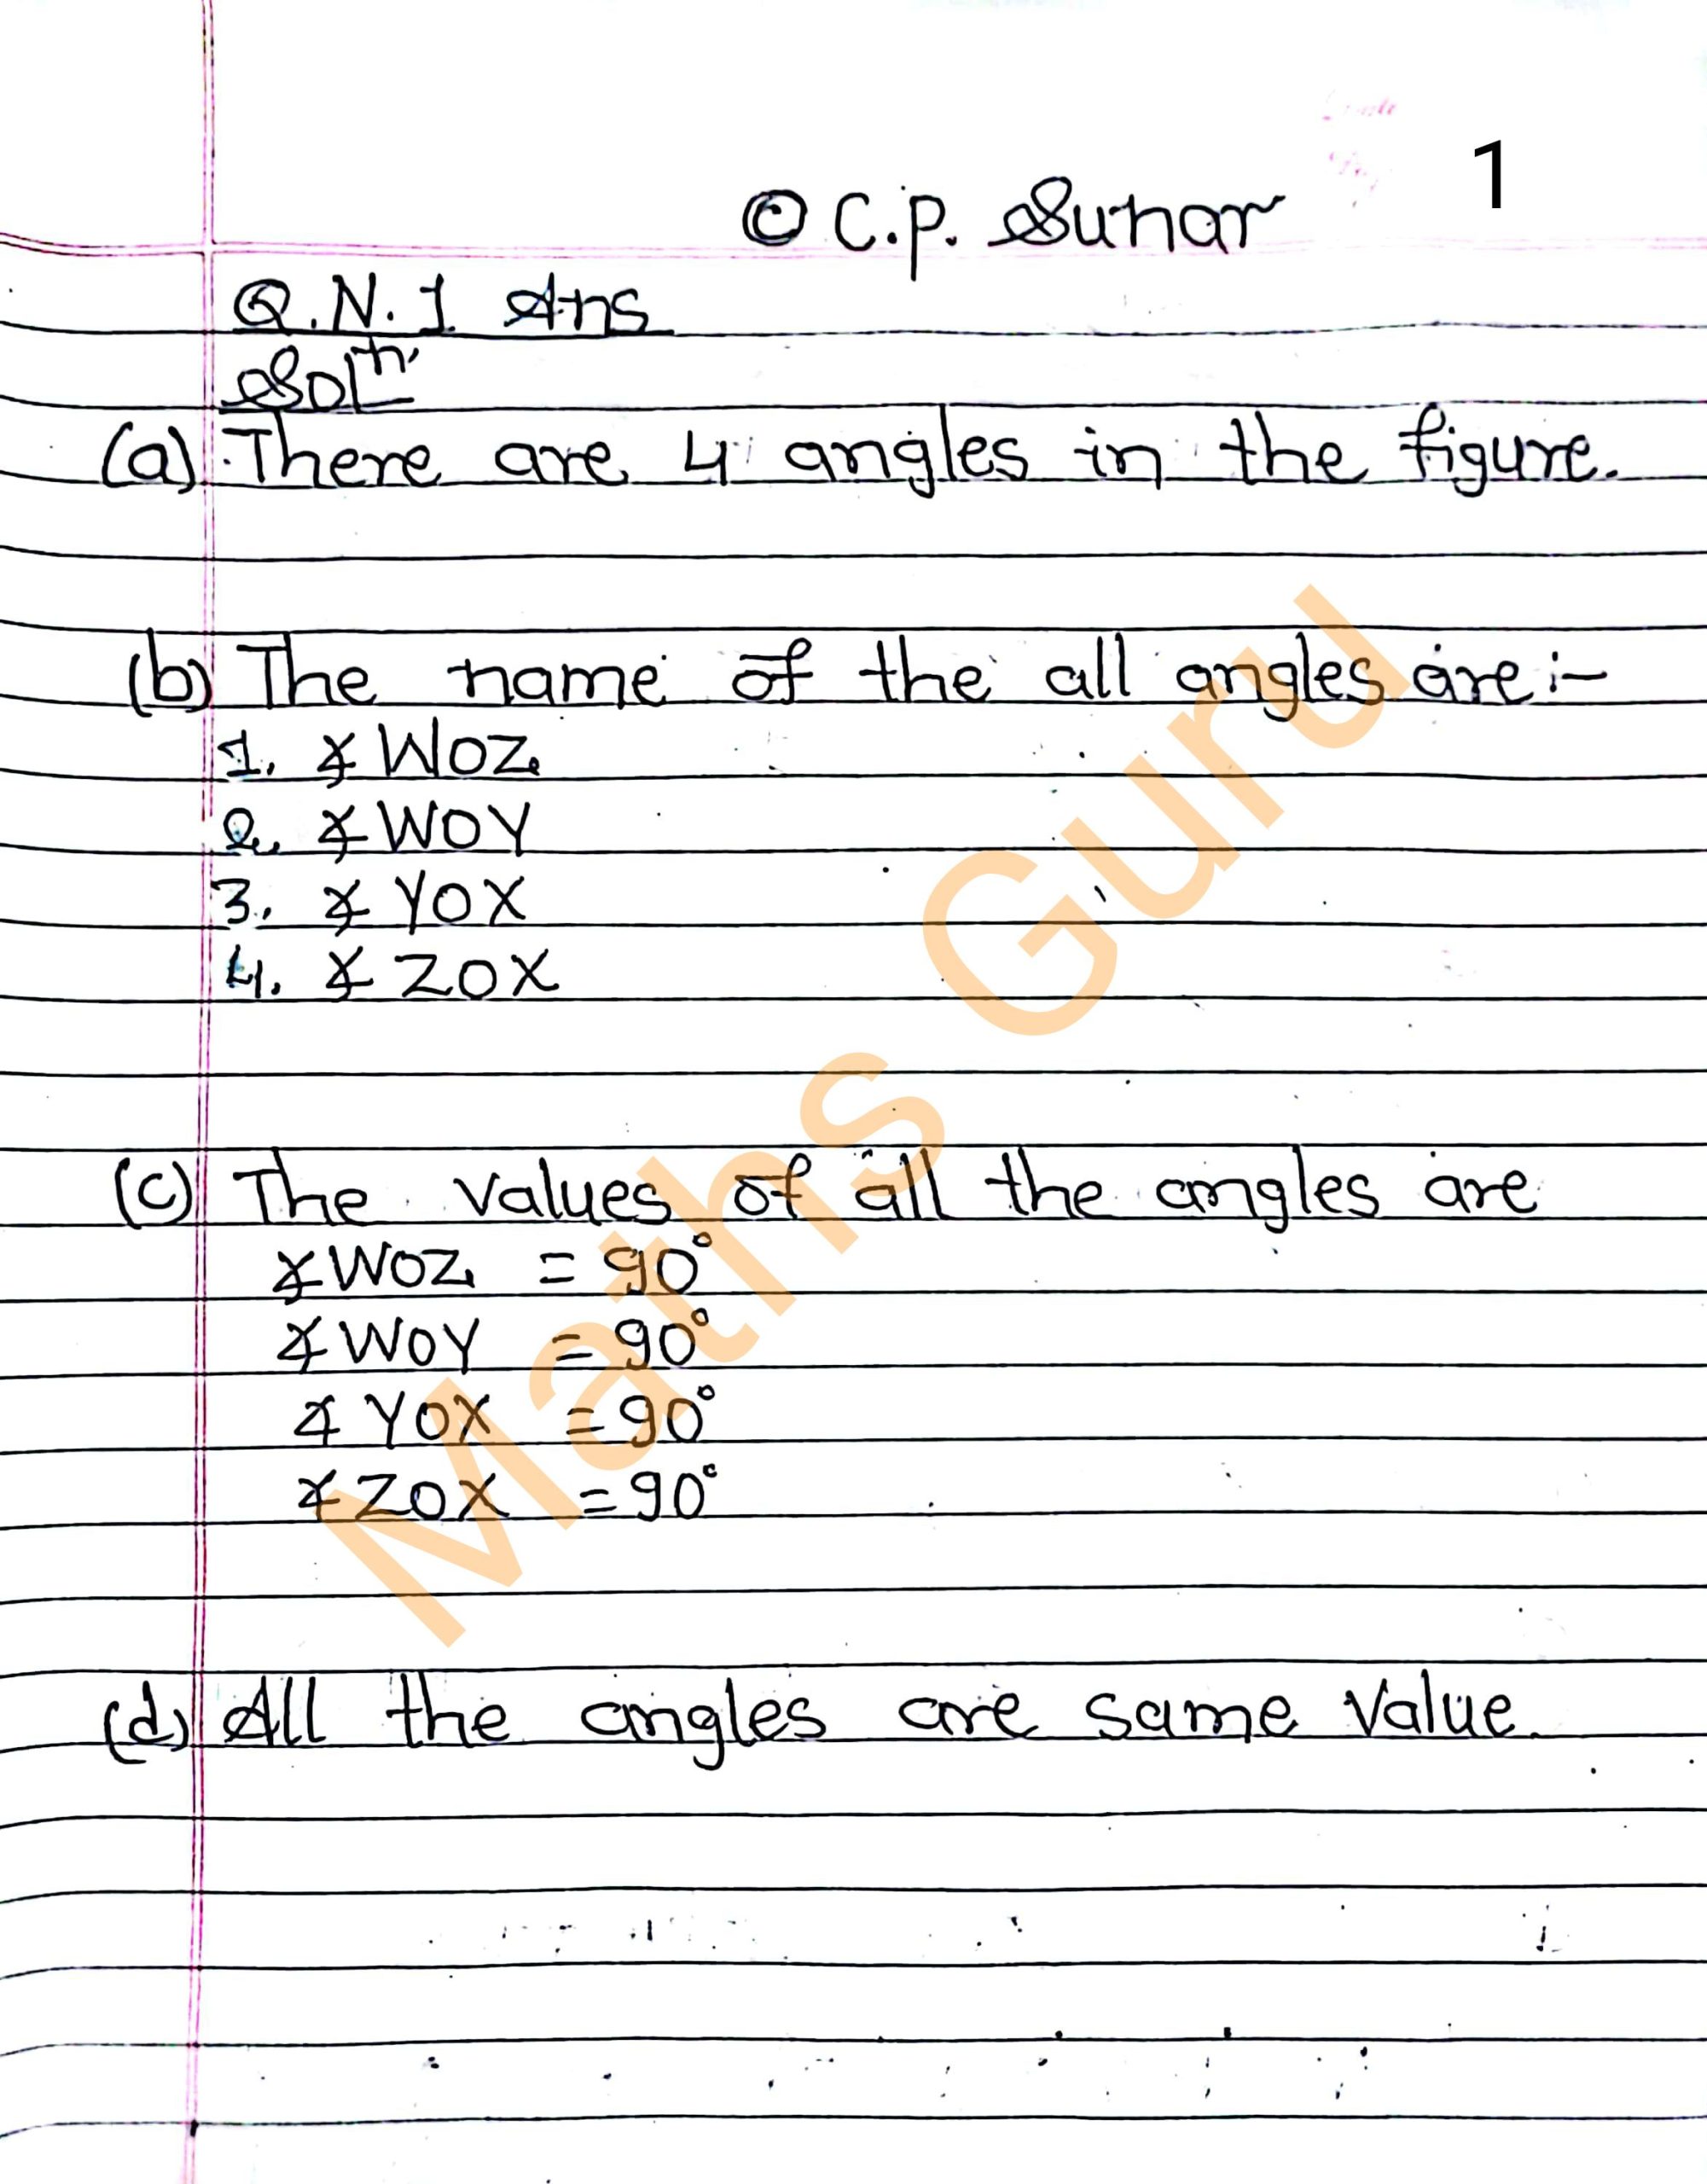 1
© C.P. Sunar
Q.N. 1 Ans
Solⁿ
(a) There are 4 angles in the figure.
(b) The name of the all angles are :-
1. ∡ WOZ
2. ∡ WOY
3. ∡ YOX
4. ∡ ZOX
(c) The values of all the angles are
∡ WOZ = 90°
∡ WOY = 90°
∡ YOX = 90°
∡ ZOX = 90°
(d) All the angles are same value.
Maths Guru